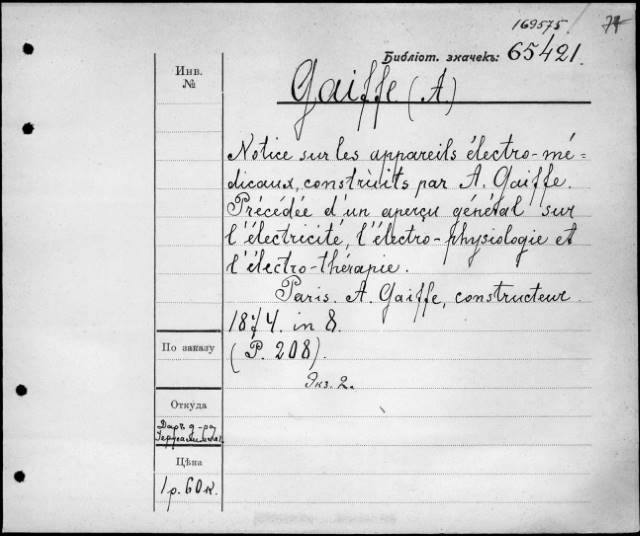 169575 74
Библіот. значекъ: 65421.
Инв.
№
Gaiffe (A.)
Notice sur les appareils électro-mé=
dicaux, construits par A. Gaiffe.
Précédée d'un aperçu général sur
l'électricité, l'électro-physiologie et
l'électro-thérapie.
Paris. A. Gaiffe, constructeur
1874. in 8.
По заказу
(P. 208).
Экз. 2.
Откуда
Даръ д-ра
Цѣна
1 р. 60 к.